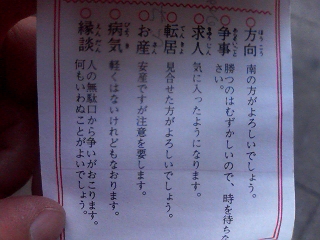 ○方向 南の方がよろしいでしょう。
○争事 勝つのはむずかしいので、時を待ちな
さい。
○求人 気に入ったようになります。
○転居 見合せた方がよろしいでしょう。
○お産 安産ですが注意を要します。
○病気 軽くはないけれどもなおります。
○縁談 人の無駄口から争いがおこります。
何もいわぬことがよいでしょう。